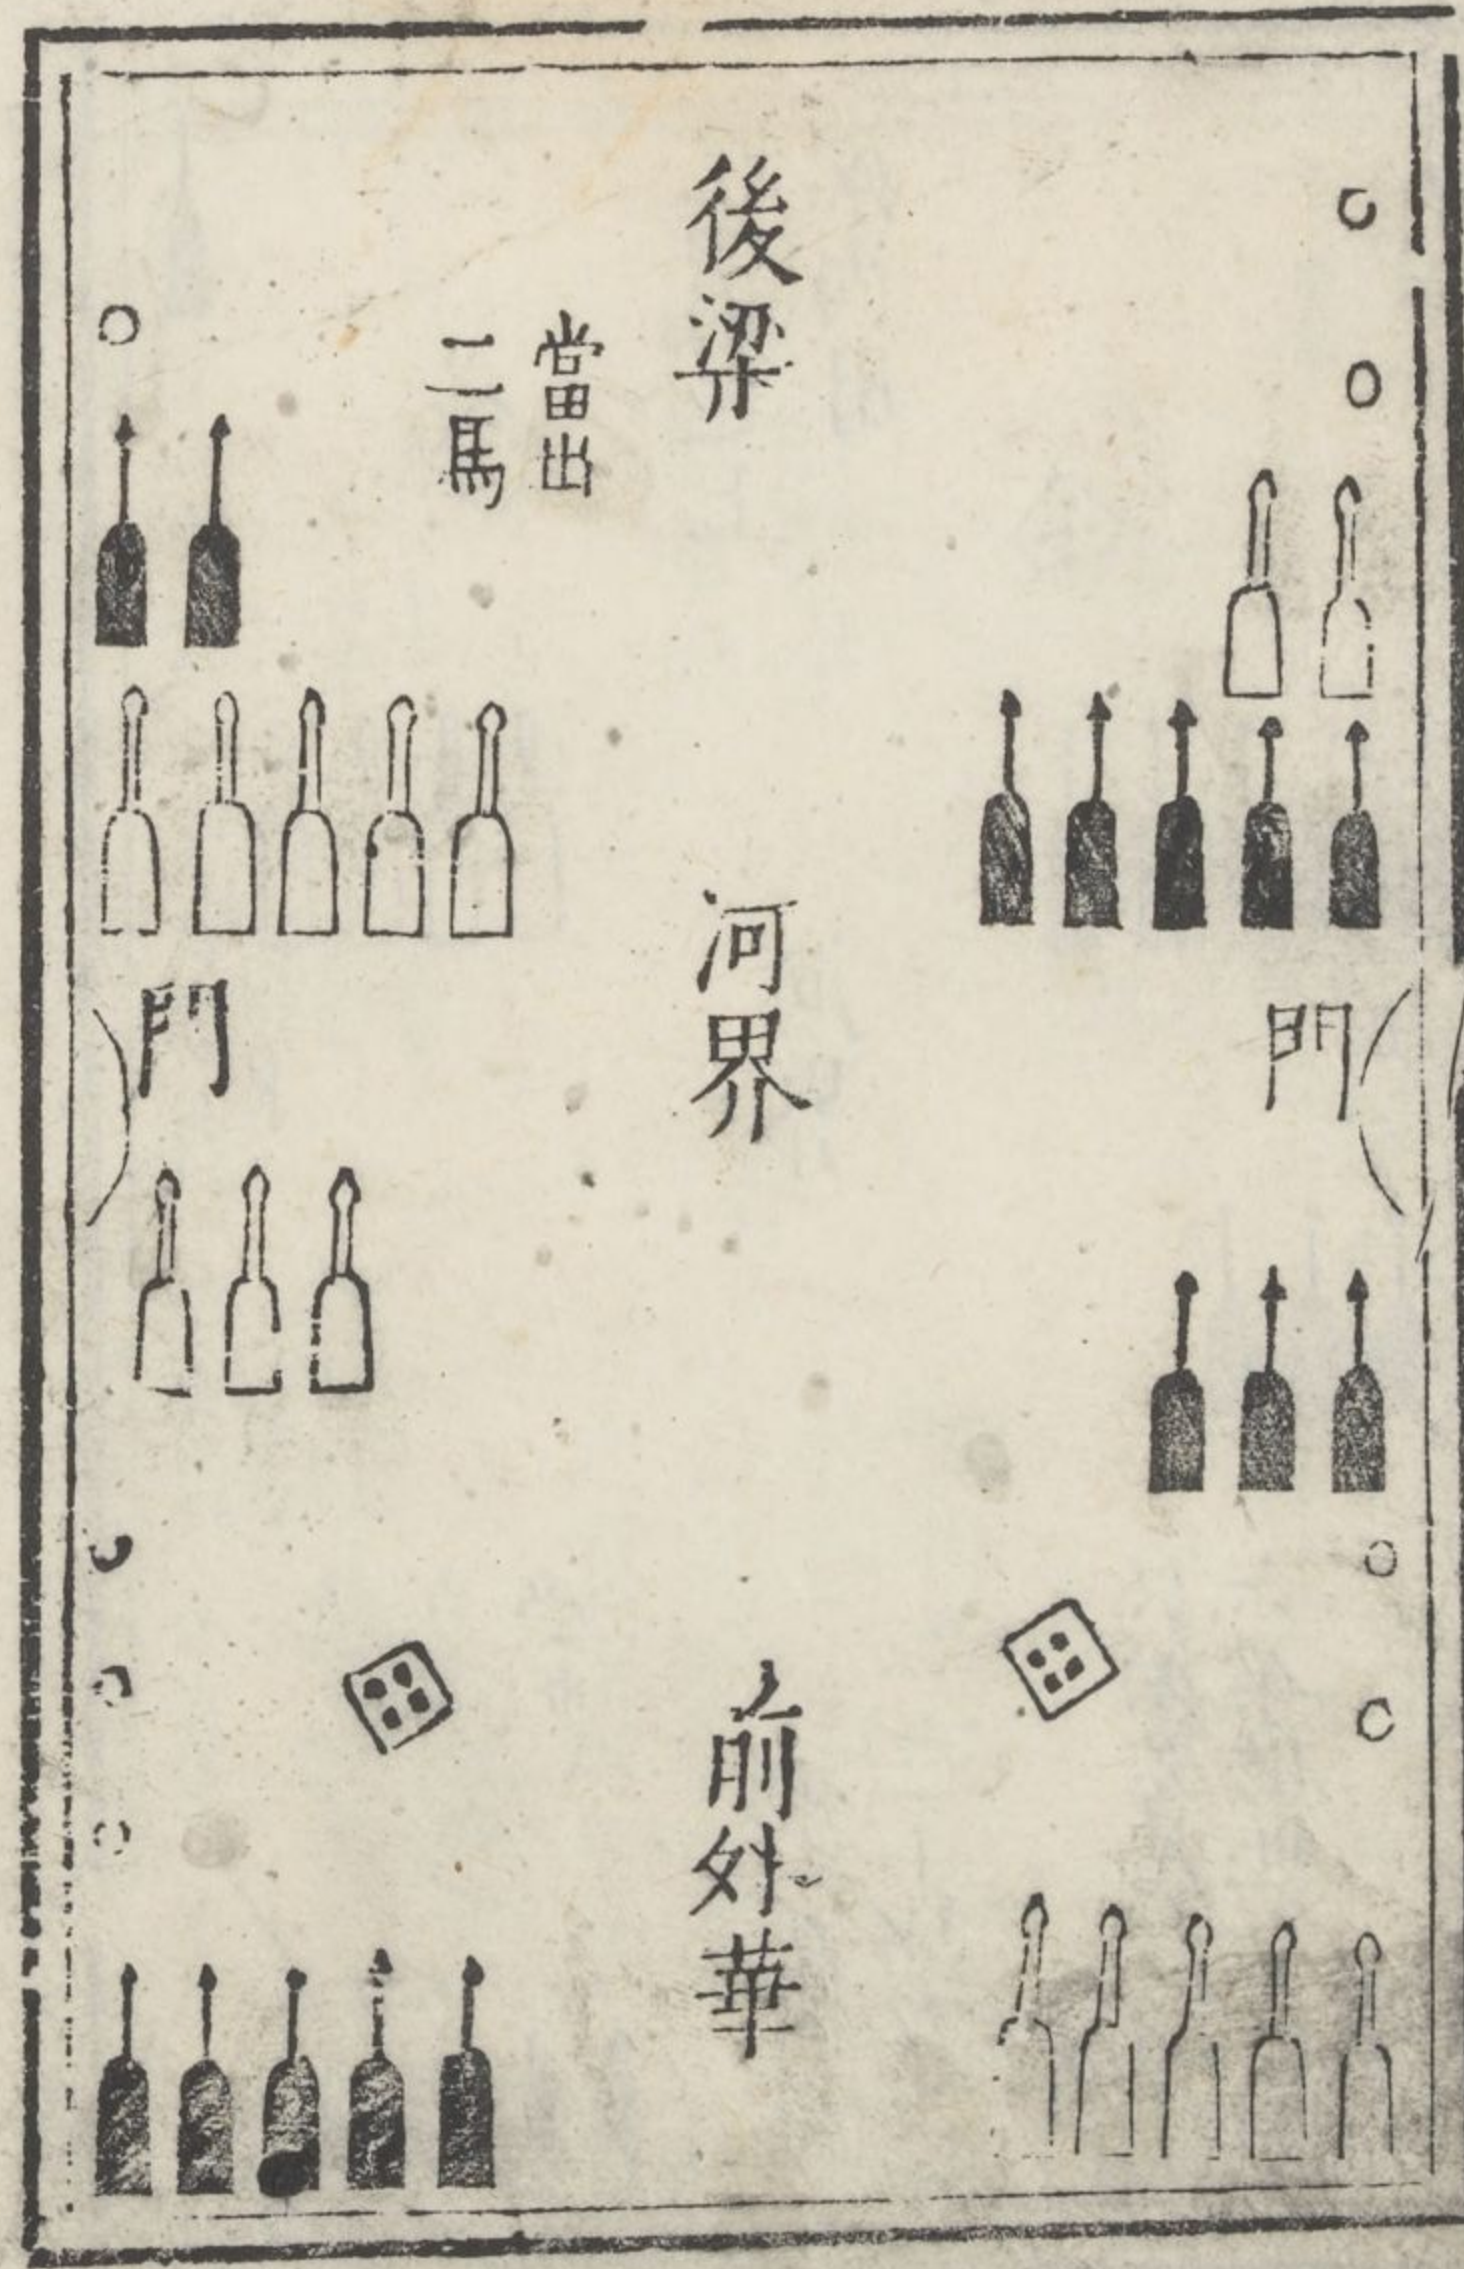 後梁
當出
二馬
河界
門
門
前外華